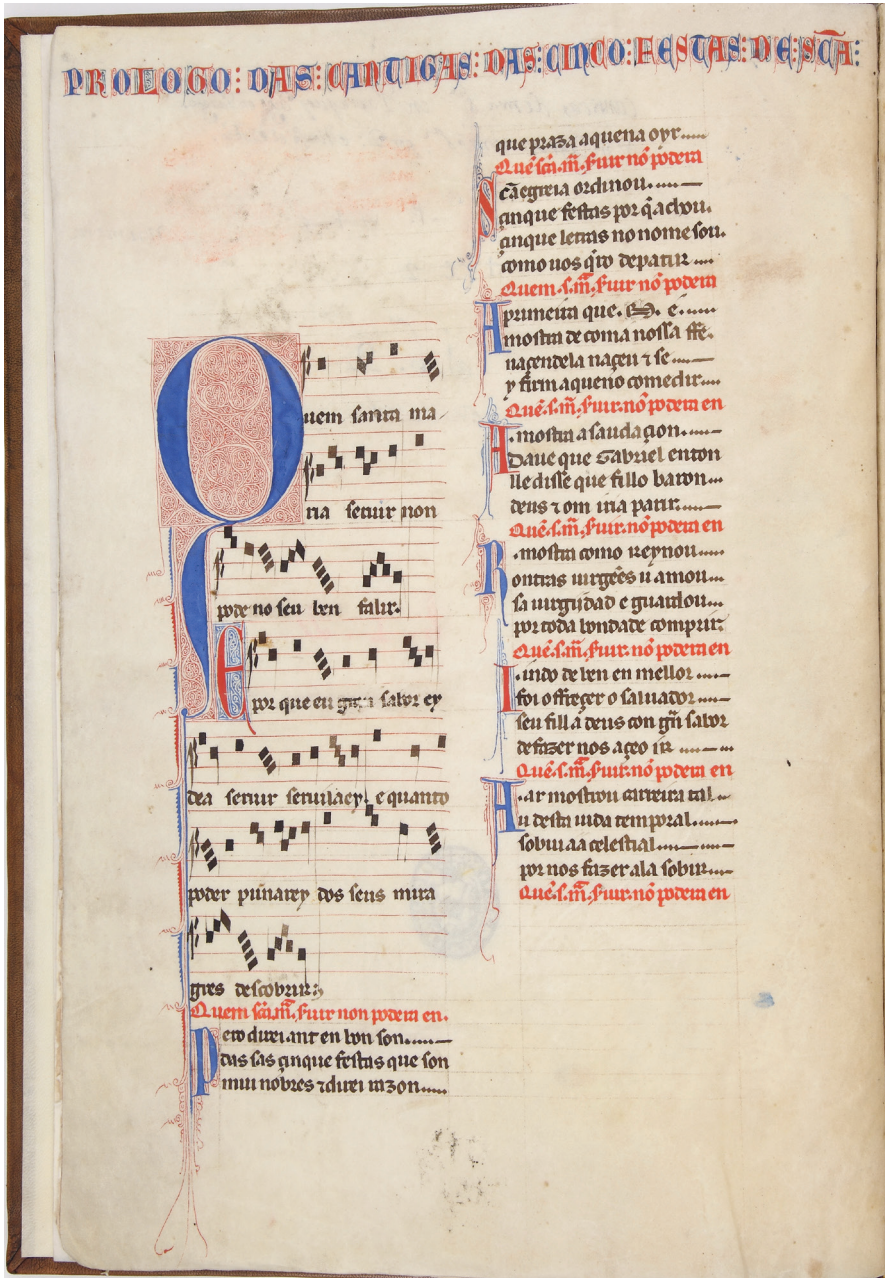 PROLOGO: DAS: CANTIGAS: DAS: CINCO: FESTAS: DE: SCA:
Quem santa ma
ria seruir non
pode no seu ben falir.
E por que eu gran sabor ey
dea seruir seruilaey. e quanto
poder punnarey dos seus mira
gres descobrir.
Quem sca. m. ſuir non podera en.
Pero direi ant en bon son.
das sas çinque festas que son
mui nobres ⁊ direi razon
que praza aquena oyr
Quē sca. m. ſuir nō podera
Sca egreia ordinou.
çinque festas por q̄ achou.
çinque letras no nome sou.
como uos q̄ro departir
Quem. s. m̄. ſuir nō podera
A primeira que. M. é.
mostra de com a nossa ffe.
naçendela naçeu ⁊ se
y firm aqueno comedir
Quē. s. m̄. ſuir. nō podera en
A. mostra a saudaçion.
Daue que Gabriel enton
lle disse que fillo baron
deus ⁊ om iria parir.
Quē. s. m̄. ſuir. nō podera en
R. mostra como reynou
ontras uirgēes u amou
sa uirgīidad e guardou
por toda bondade comprir
Quē. s. m̄. ſuir. nō podera en
I. indo de ben en mellor
foi offreçer o saluador
seu fill á deus con grā sabor
de fazer nos açeo ir
Quē. s. m̄. ſuir. nō podera en
A. ar mostrou carreira tal
u desta uida temporal
sobiu aa celestial
por nos fazer ala sobir
Quē. s. m̄. ſuir. nō podera en